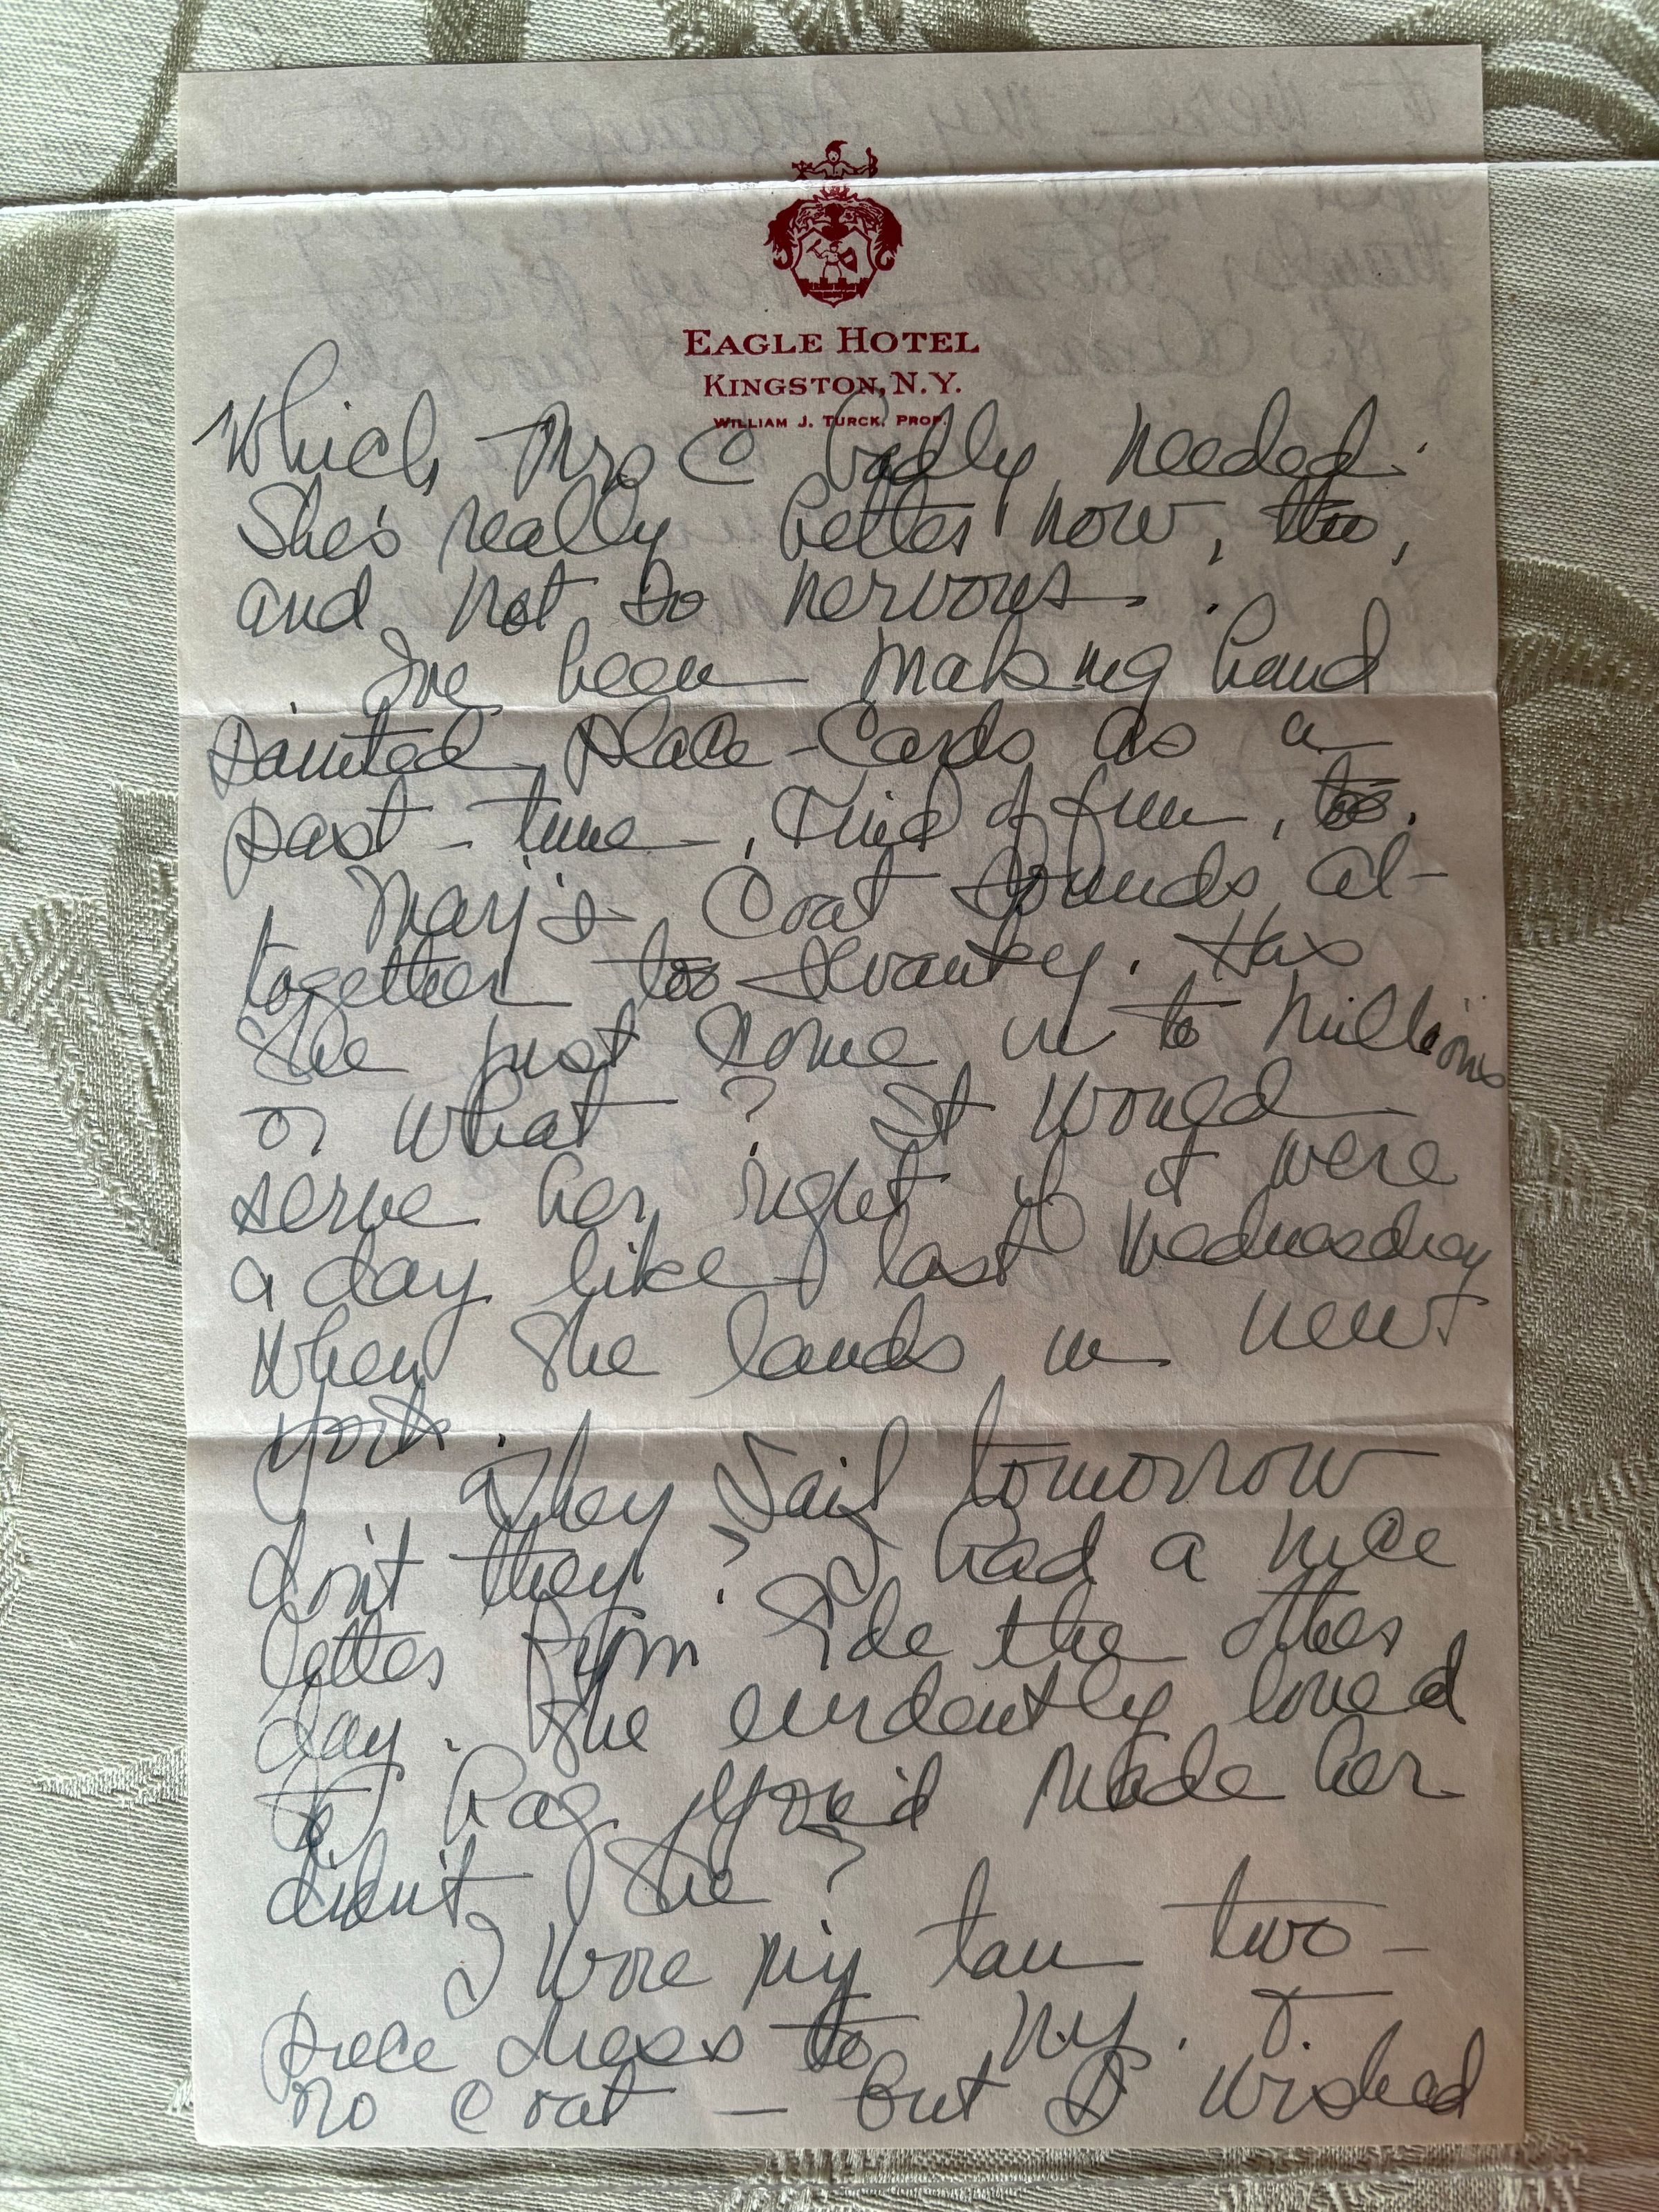 EAGLE HOTEL
KINGSTON, N.Y.
WILLIAM J. TURCK, PROP.
Which Mrs C badly needed.
She's really better now, too,
and not so nervous.
I've been making hand
painted place-cards as a
past-time, kind of fun, too.
Marj's coat sounds al-
together too swanky. Has
she just come in to millions
or what? It would
serve her right if it were
a day like last Wednesday
when she lands in new
York. They sail tomorrow
don't they? I had a nice
letter from Ide the other
day. She evidently loved
bag you'd made her
didn't she?
I wore my tan two-
piece dress to N.Y. &
no coat — but I wished